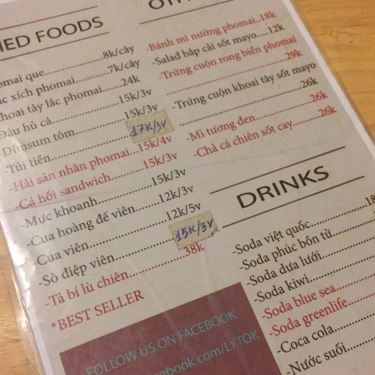 FOODS
8k/cây
7k/cây
khoai tây lắc phomai.....24k
Đậu hủ cá.....15k/3v
Dimsum tôm.....15k/3v
Túi tiền.....17K/3v
-Hải sản nhân phomai...15k/4v
-Cá hồi sandwich.....15k/3v
-Mực khoanh.....15k/3v
-Cua hoàng đế viên....12k/3v
-Cua viên.....12k/5v
-Sò điệp viên.....15K/3V
-Tả bí lù chiên.....38k
*BEST SELLER
FOLLOW US ON FACEBOOK
facebook.com/LYTOK
-Bánh mì nướng phomai..18k
-Salad bắp cải sốt mayo...12k
-Trứng cuộn rong biển phomai
29k
-Trứng cuộn khoai tây sốt mayo
26k
-Mì tương đen.....26k
-Chả cá chiên sốt cay.....26k
DRINKS
-Soda việt quốc
-Soda phúc bồn tử
-Soda dưa lưới
-Soda kiwi
-Soda blue sea
-Soda greenlife
-Coca cola
-Nước suối